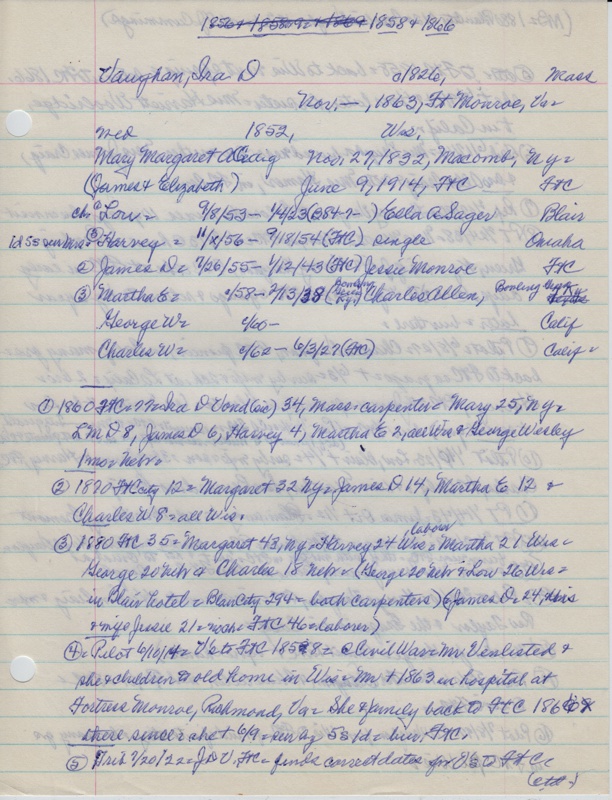 1858 & 1866
Vaughan, Ira D c/1826, Mass
Nov. —, 1863, Ft Monroe, Va =
med 1852, Wis,
Mary Margaret Nov, 27, 1832, Macomb, Ny =
(James & Elizabeth) June 9, 1914, FtC FtC
Lou = 9/8/53 – 1/4/23 ) Eella A Sager Blair
Harvey = 11/ /56 – 9/18/54 (FtC) single Omaha
② James D = 7/26/55 – 1/12/43 (FtC) Jessie Monroe FtC
③ Martha E = c/58 – 2/13/38 (Bowling Green Ky) Charles Allen, Bowling Green
George W = c/60 – Calif
Charles W = c/62 – 6/3/27 (FtC) Calif =
① 1860 FtC = Ira D 34, Mass = carpenter = Mary 25, Ny =
L M D 8, James D 6, Harvey 4, Martha E 2, all Wis & George Wesley
1mo = Nebr =
② 1870 FtC city 12 = Margaret 32 Ny = James D 14, Martha E 12 &
Charles W 8 = all Wis.
③ 1880 FtC 35 = Margaret 43, Ny = Harvey 24 Wis = labor Martha 21 Wis =
George 20 Nebr & Charles 18 Nebr = (George 20 Nebr & Lou 26 Wis =
in Blair hotel = Blair City 294 = both carpenters) (James D = 24, Wis
& wife Jessie 21 = FtC 46 = laborer)
④ = Pilot 6/10/14 = V's to FtC 1858 = Civil War = Mr V enlisted &
she & children to old home in Wis = Mr + 1863 in hospital at
Fortress Monroe, Richmond, Va = She & family back to FtC 186
there since =
⑤ Trib 7/20/22 = J D V, FtC = finds correct dates for V's to FtC
(etc =)